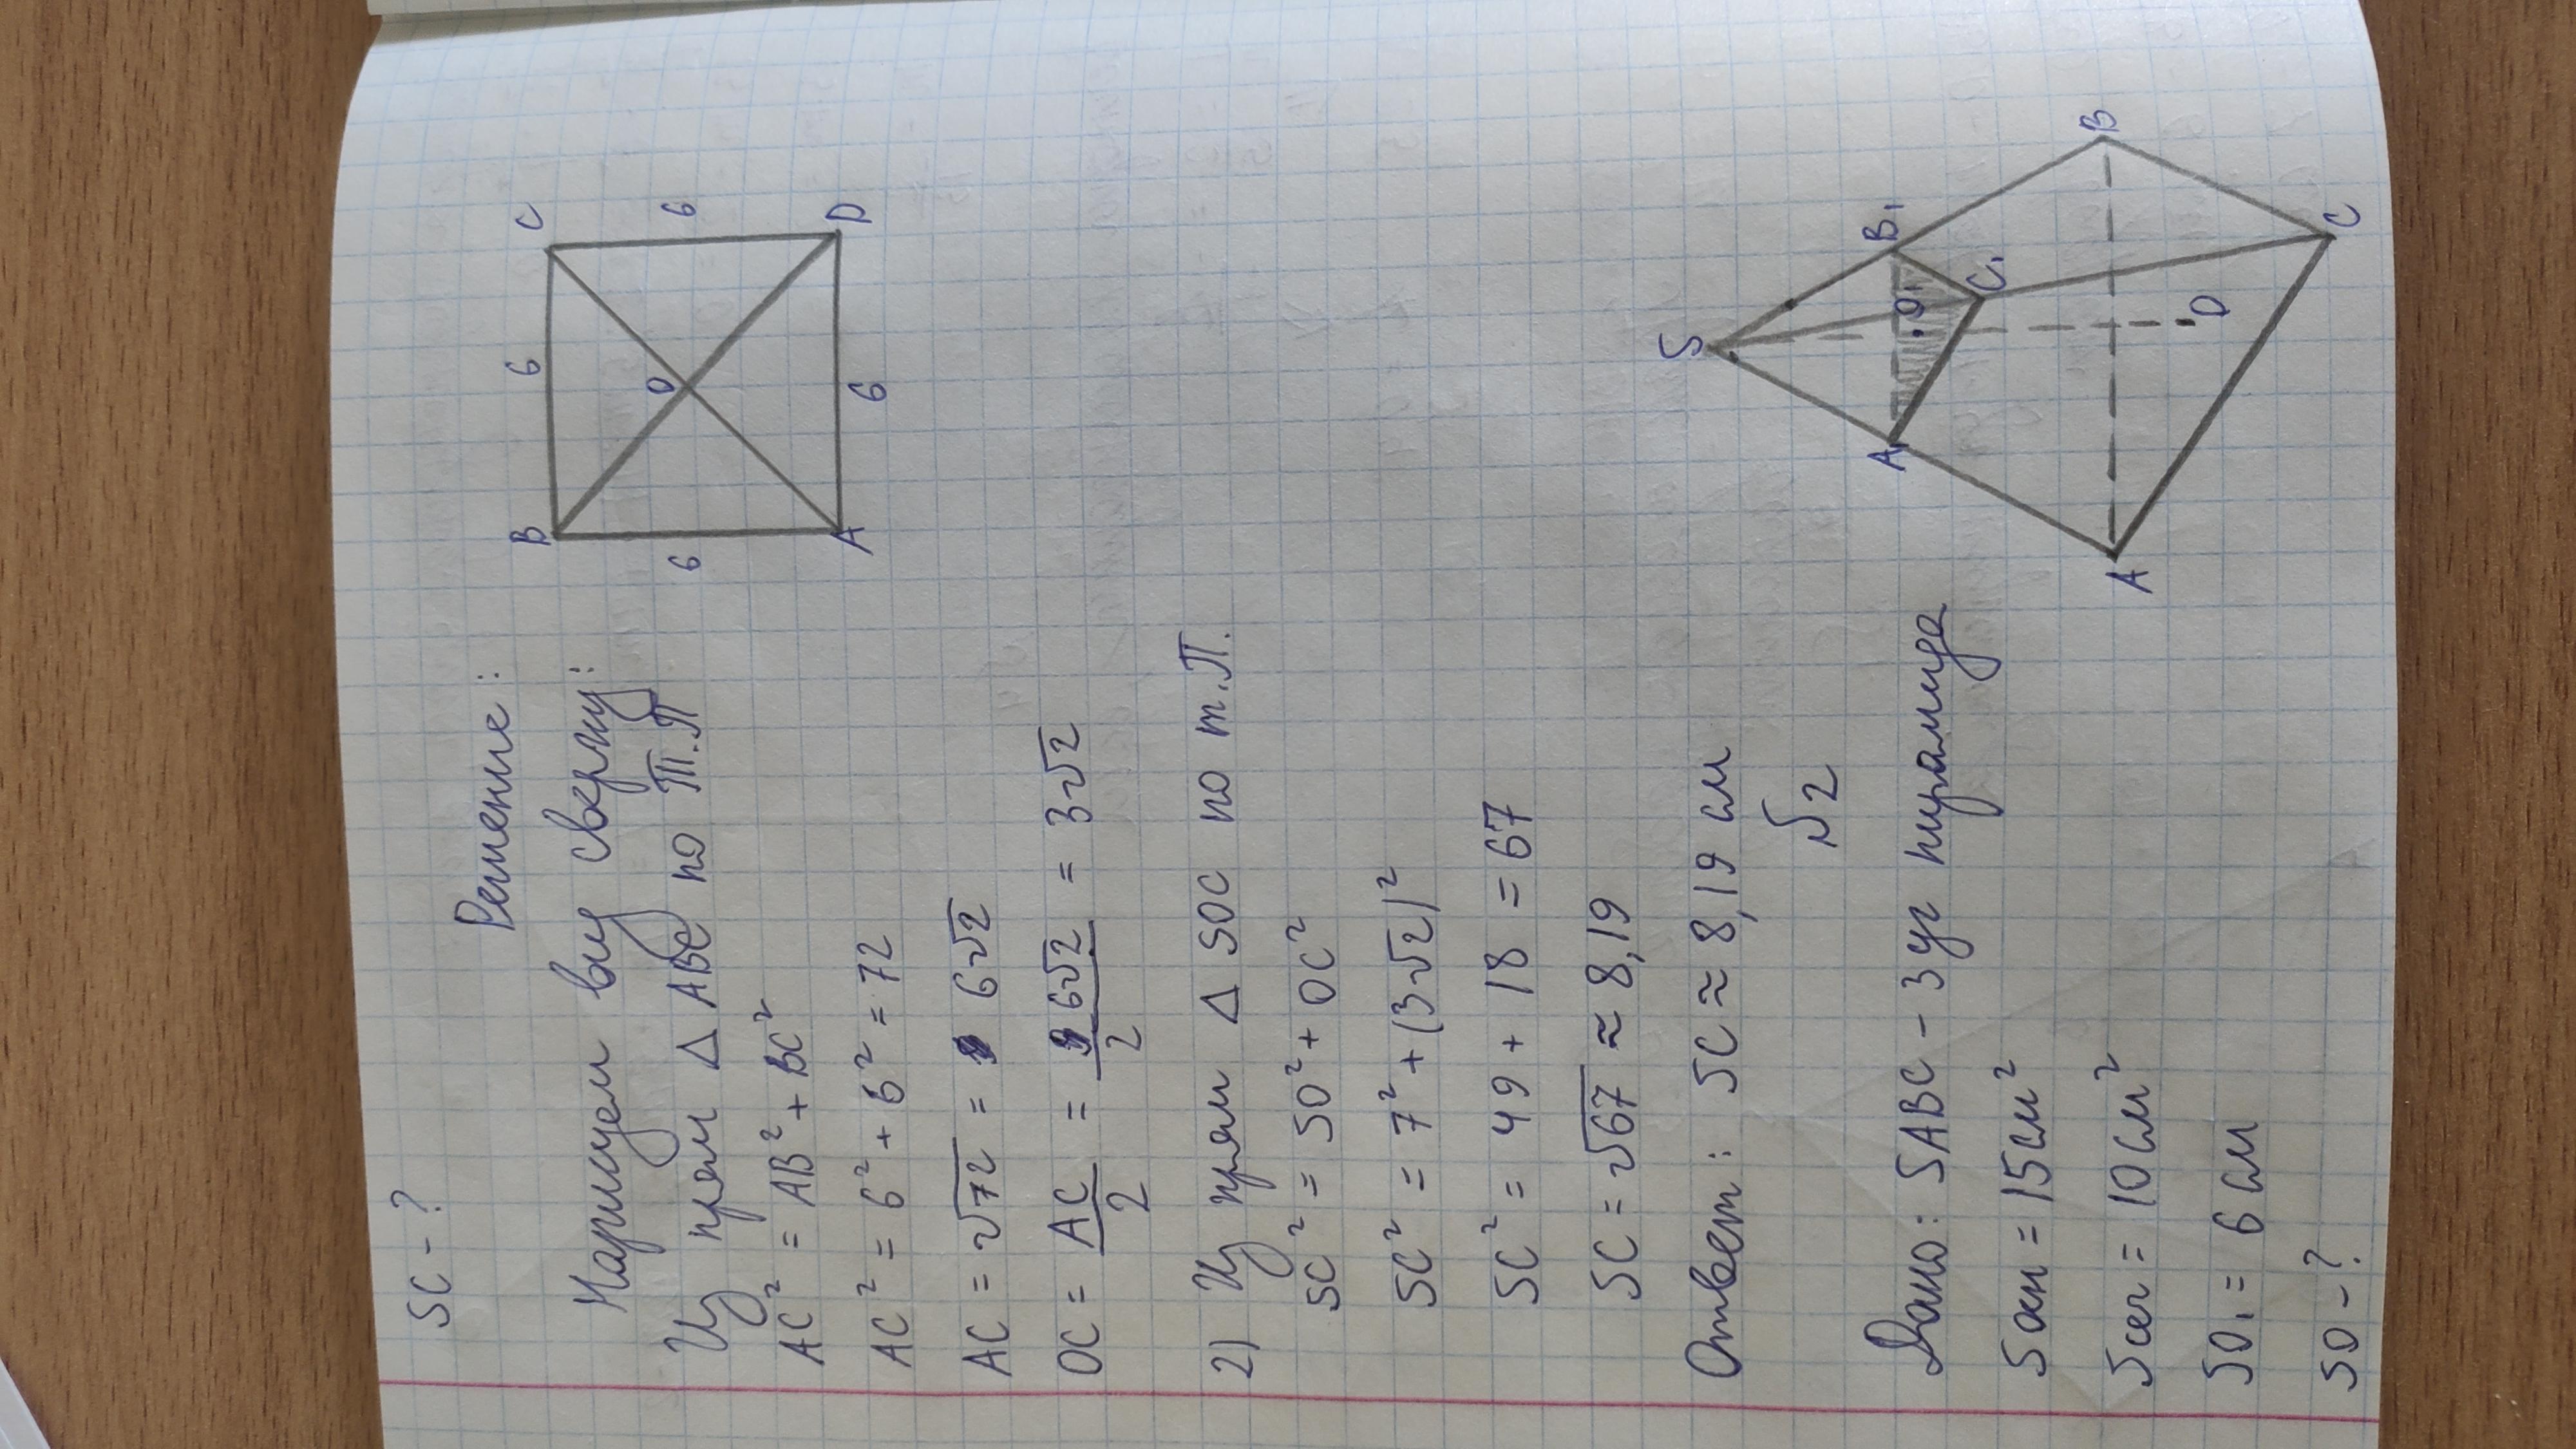 SC - ?
Решение:
Нарисуем вид сверху:
Из прям Δ ABC по Т.П
AC² = AB² + BC²
AC² = 6² + 6² = 72
AC = √72 = 6√2
OC = AC/2 = 6√2/2 = 3√2
B
C
A
D
O
6
6
6
6
2) Из прям Δ SOC по т.П.
SC² = SO² + OC²
SC² = 7² + (3√2)²
SC² = 49 + 18 = 67
SC = √67 ≈ 8,19
Ответ: SC ≈ 8,19 см
№2
Дано: SABC - 3 уг пирамида
Sосн = 15 см²
Sсеч = 10 см²
SO₁ = 6 см
SO - ?
S
A₁
B₁
C₁
O₁
A
B
C
O